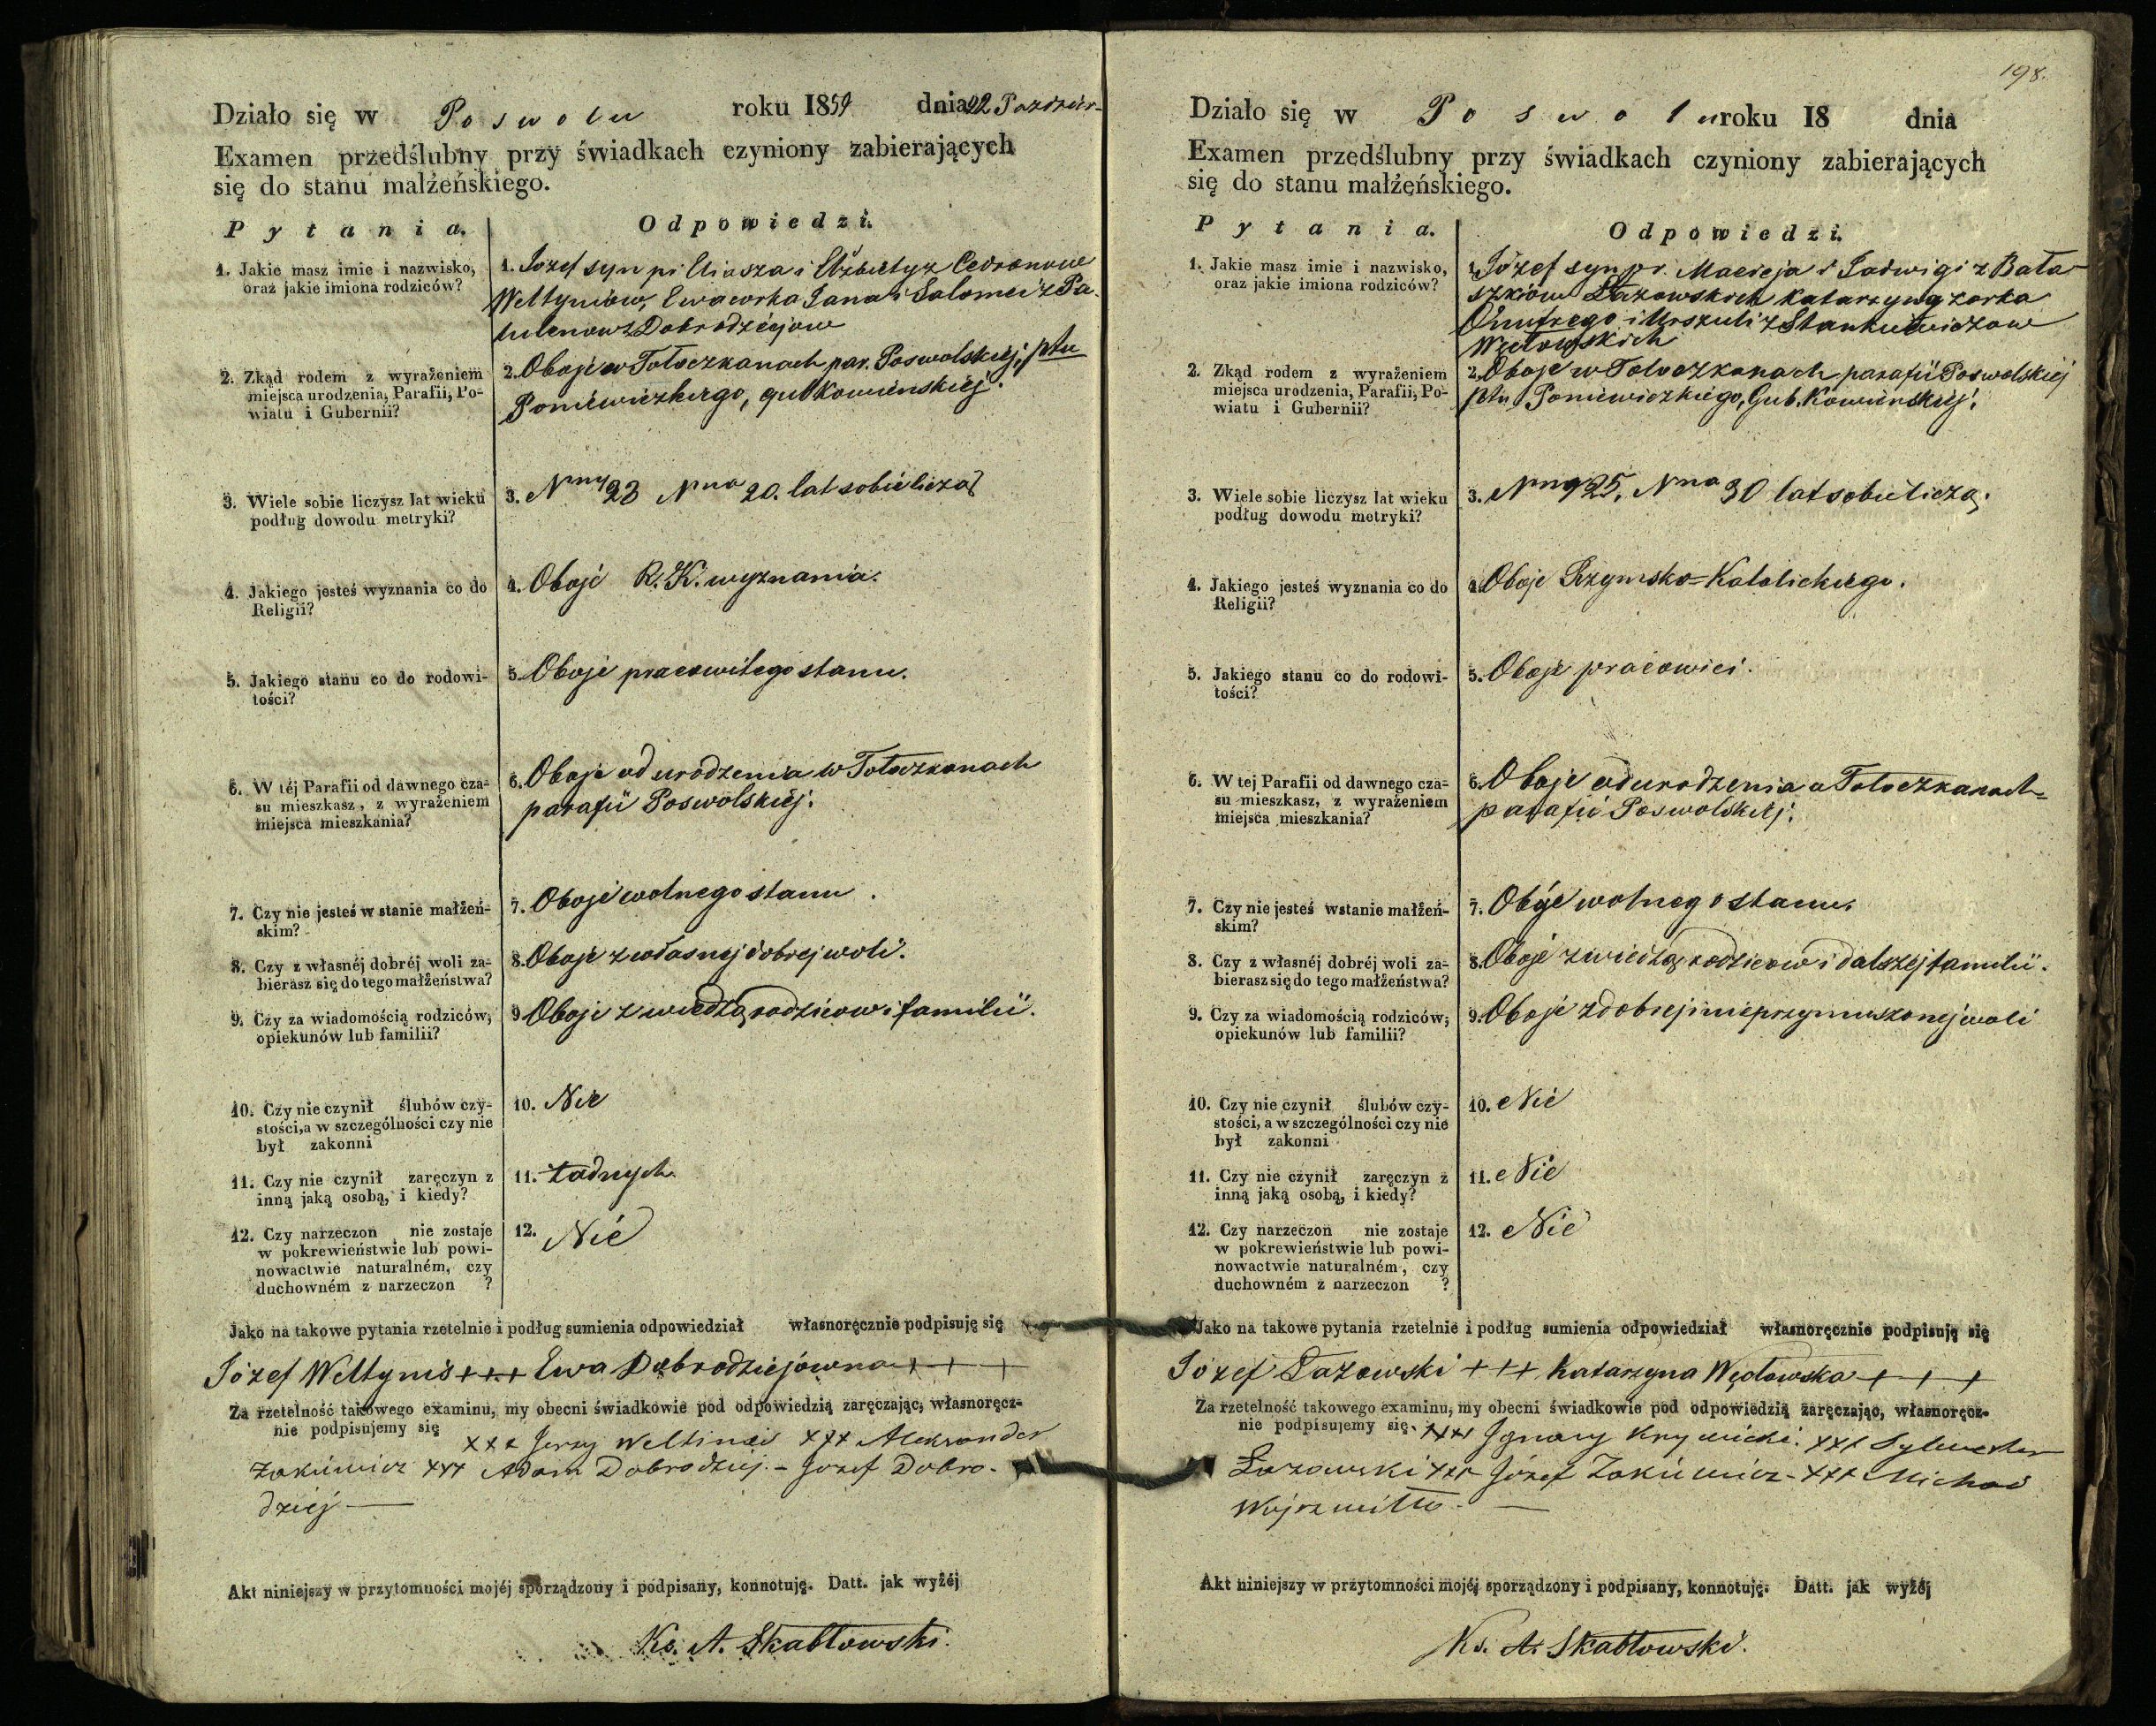 Działo się w Poswolu roku 1859 dnia 22 Paździer-
Examen przedślubny przy świadkach czyniony zabierających
się do stanu małżeńskiego.
Pytania. Odpowiedzi.
1. Jakie masz imie i nazwisko,
oraz jakie imiona rodziców?
1. Józef syn pr Eliasza i Elżbiety z
Weltyniów, Ewa Jana i Salomei z Pa-
Dobrodziejow
2. Zkąd rodem z wyrażeniem
miejsca urodzenia, Parafii, Po-
wiatu i Gubernii?
2. Oboje w Tołoczkanach par. Poswolskiej, ptu
Poniewiezkiego, gub Kowieńskiej.
3. Wiele sobie liczysz lat wieku
podług dowodu metryki?
3. Nny 23 Nna 20. lat sobie liczą
4. Jakiego jesteś wyznania co do
Religii?
4. Oboje R. K. wyznania.
5. Jakiego stanu co do rodowi-
tości?
5. Oboje pracowitego stanu.
6. W téj Parafii od dawnego cza-
su mieszkasz, z wyrażeniem
miejsca mieszkania?
6. Oboje od urodzenia w Tołoczkanach
parafii Poswolskiej.
7. Czy nie jesteś w stanie małżeń-
skim?
7. Oboje wolnego stanu.
8. Czy z własnéj dobréj woli za-
bierasz się do tego małżeństwa?
8. Oboje z własnej dobrej woli.
9. Czy za wiadomością rodziców,
opiekunów lub familii?
9 Oboje z wiedzą rodzicow i familii.
10. Czy nie czynił ślubów czy-
stości, a w szczególności czy nie
był zakonni
10. Nie
11. Czy nie czynił zaręczyn z
inną jaką osobą, i kiedy?
11. Żadnych
12. Czy narzeczon nie zostaje
w pokrewieństwie lub powi-
nowactwie naturalném, czy
duchowném z narzeczon ?
12. Nie
Jako na takowe pytania rzetelnie i podług sumienia odpowiedział własnoręcznie podpisuję się
Józef Weltynis +++ Ewa Dobrodziejówna + + +
Za rzetelność takowego examinu, my obecni świadkowie pod odpowiedzią zaręczając, własnoręcz-
nie podpisujemy się
xxx Jerzy Weltinis xxx Aleksander
Zakiewicz xxx Adam Dobrodziej. - Jozef Dobro-
dziej
Akt niniejszy w przytomności mojéj sporządzony i podpisany, konnotuję. Datt. jak wyżéj
Ks. A. Skabłowski.
198.
Działo się w Poswolu roku 18 dnia
Examen przedślubny przy świadkach czyniony zabierających
się do stanu małżeńskiego.
Pytania. Odpowiedzi.
1. Jakie masz imie i nazwisko,
oraz jakie imiona rodziców?
1. Józef syn pr. Macieja i Jadwigi z Bała-
szkiow Łazowskich Katarzyna zorka
Onufrego i Urszuli z Stankiewiczow
Węcłowskich
2. Zkąd rodem z wyrażeniem
miejsca urodzenia, Parafii, Po-
wiatu i Gubernii?
2. Oboje w Tołoczkanach parafii Poswolskiej
ptu Poniewiezkiego, Gub. Kowieńskiej.
3. Wiele sobie liczysz lat wieku
podług dowodu metryki?
3. Nny 25, Nna 30 lat sobie liczą.
4. Jakiego jesteś wyznania co do
Religii?
4. Oboje Rzymsko=Katolickiego.
5. Jakiego stanu co do rodowi-
tości?
5. Oboje pracowici.
6. W tej Parafii od dawnego cza-
su mieszkasz, z wyrażeniem
miejsca mieszkania?
6. Oboje od urodzenia w Tołoczkanach=
parafii Poswolskiej.
7. Czy nie jesteś wstanie małżeń-
skim?
7. Oboje wolnego stanu.
8. Czy z własnéj dobréj woli za-
bierasz się do tego małżeństwa?
8. Oboje z wiedzą rodzicow i dalszej familii.
9. Czy za wiadomością rodziców,
opiekunów lub familii?
9. Oboje z dobrej i nieprzymuszonej woli
10. Czy nie czynił ślubów czy-
stości, a w szczególności czy nie
był zakonni
10. Nie
11. Czy nie czynił zaręczyn z
inną jaką osobą, i kiedy?
11. Nie
12. Czy narzeczon nie zostaje
w pokrewieństwie lub powi-
nowactwie naturalném, czy
duchowném z narzeczon ?
12. Nie
Jako na takowe pytania rzetelnie i podług sumienia odpowiedział własnoręcznie podpisuję się
Józef Łazowski +++ Katarzyna Węcłowska + + +
Za rzetelność takowego examinu, my obecni świadkowie pod odpowiedzią zaręczając, własnoręcz-
nie podpisujemy się. xxx Ignacy Krywicki. xxx Sylwester
Łazowski xxx Józef Zakiewicz - xxx Michał
Akt niniejszy w przytomności mojéj sporządzony i podpisany, konnotuję. Datt. jak wyżéj
Ks. A. Skabłowski.